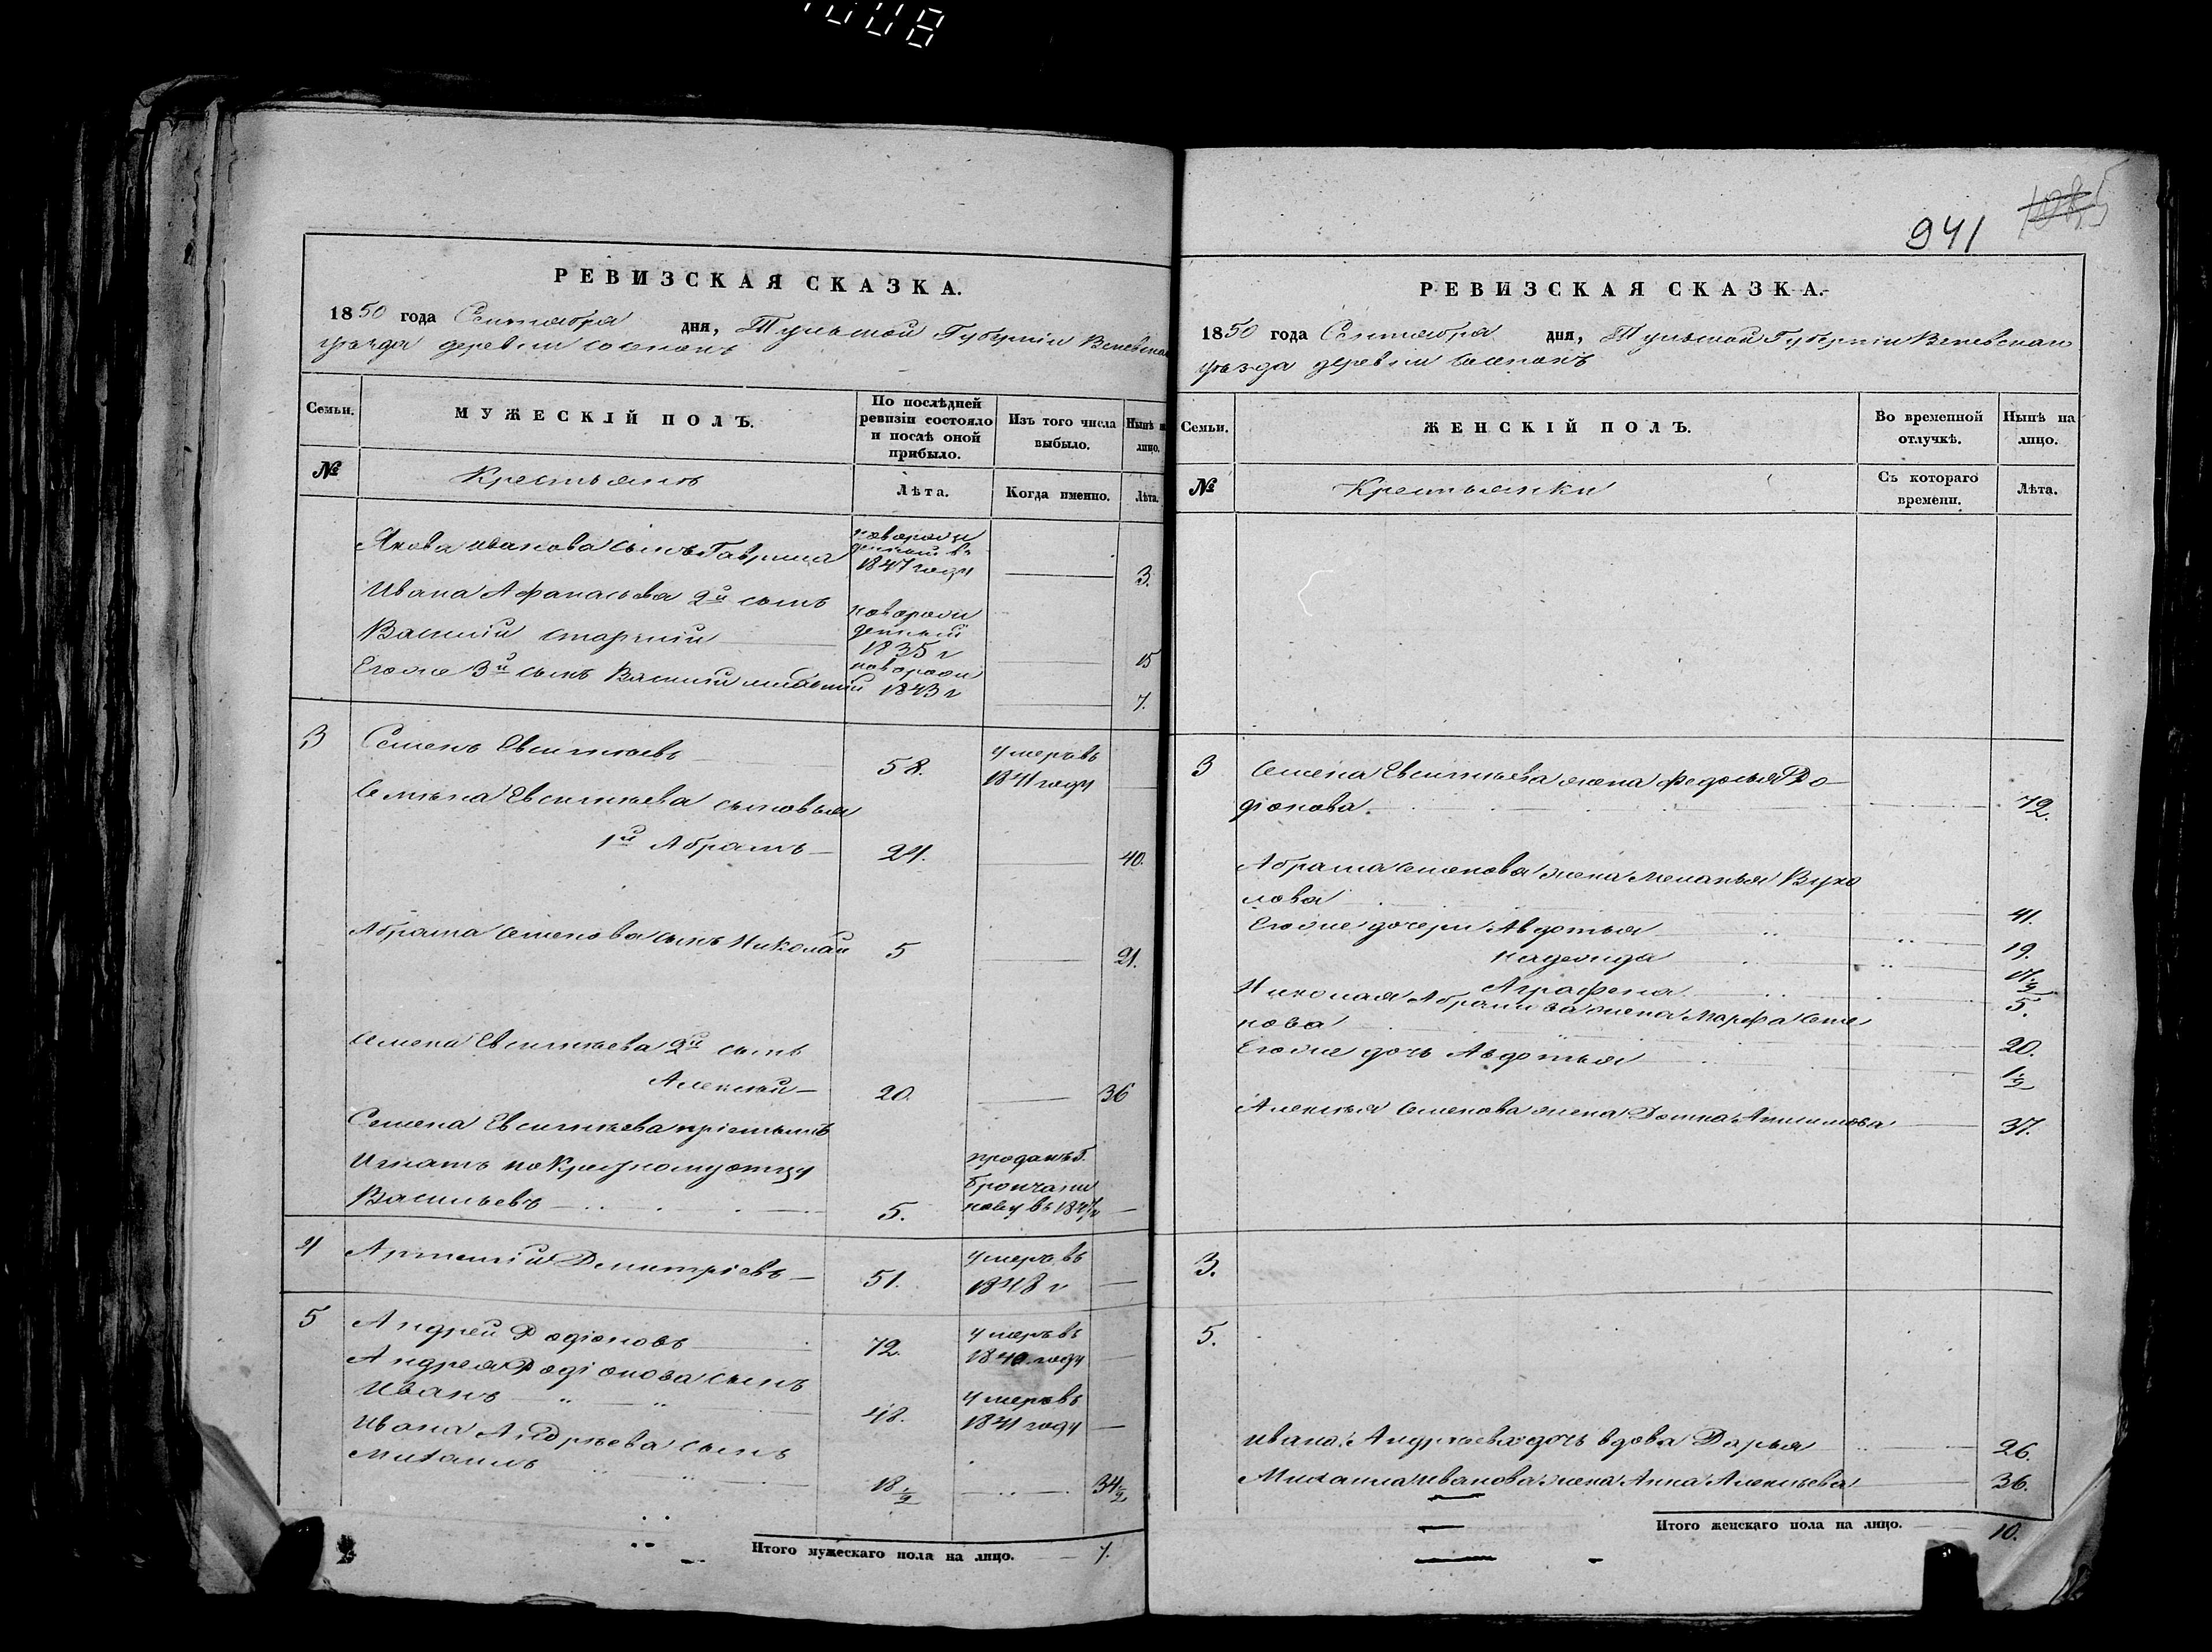 008
РЕВИЗСКАЯ СКАЗКА.
1850 года Сентября дня, Тульской Губернии Веневскаго
уѣзда деревни
Семьи.
МУЖЕСКІЙ ПОЛЪ.
По послѣдней ревизіи состояло и послѣ оной прибыло.
Изъ того числа выбыло.
Нынѣ на лицо.
№
Крестьянъ
Лѣта.
Когда именно.
Лѣта.
Якова Иванова сынъ Гаврила новорожденный въ 1847 году 3.
Ивана Афанасьева 2й сынъ
Василій старшій новорожденный 1835 г 15
Егоже 3й сынъ Василій меньшій новорожд 1843 г 7.
3 Семенъ Евсигнѣевъ 58. умеръ въ 1841 году
Семена Евсигнѣева сыновья
1й Абрамъ 24. 40.
Абрама Семенова сынъ Николай 5 21.
Семена Евсигнѣева 2й сынъ
Алексѣй 20. 36
Семена Евсигнѣева пріемышъ
Игнатъ по Крестному отцу
Васильевъ 5. проданъ Г. въ 1847 г
4 Артемій Дмитріевъ 51. умеръ въ 1848 г
5 Андрей Родіоновъ 72. умеръ въ 1840 году
Андрея Родіонова сынъ
Иванъ 48. умеръ въ 1841 году
Ивана Андрѣева сынъ
Михаилъ 18 ½ 34 ½
Итого мужескаго пола на лицо. 7.
941
РЕВИЗСКАЯ СКАЗКА.
1850 года Сентября дня, Тульской Губерніи Веневскаго
уѣзда деревни
Семьи.
ЖЕНСКІЙ ПОЛЪ.
Во временной отлучкѣ.
Нынѣ на лицо.
№
Крестьянки
Съ котораго времени.
Лѣта.
3 Семена Евсигнѣева жена Федосья Ро-
діонова 72.
Абрама Семенова жена Меланья Вуко
лова 41.
Егоже дочери Авдотья 19.
Надежда 17 ½
Аграфена 5.
Николая Абрамова жена Марфа Семе
нова 20.
Егоже дочь Авдотья 1 ½
Алексѣя Семенова жена Домна 37.
3.
5.
Ивана Андрѣева дочь вдова Дарья 26.
Михаила Иванова жена Анна Алексѣева 36.
Итого женскаго пола на лицо. 10.